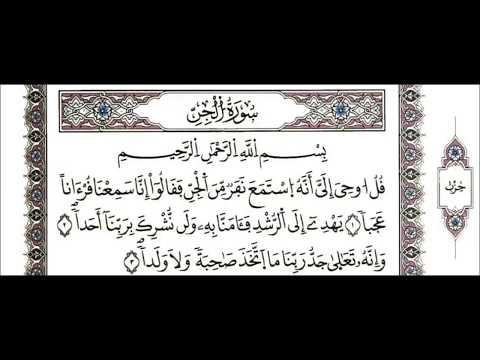 سُورَةُ الْجِنِّ
بِسْمِ اللَّهِ الرَّحْمَٰنِ الرَّحِيمِ
قُلُ اوحِيَ إِلَيَّ أَنَّهُ اسْتَمَعَ نَفَرٌ مِّنَ الْجِنِّ فَقَالُوٓا إِنَّا سَمِعْنَا قُرْءَاناً
عَجَباً ١ يَهْدِےٓ إِلَى الرُّشْدِ فَـَٔامَنَّا بِهِۦ وَلَن نُّشْرِكَ بِرَبِّنَآ أَحَداً ٢
وَإِنَّهُۥ تَعَٰلَىٰ جَدُّ رَبِّنَا مَا اتَّخَذَ صَاحِبَةً وَلَا وَلَداً ٣
حزب